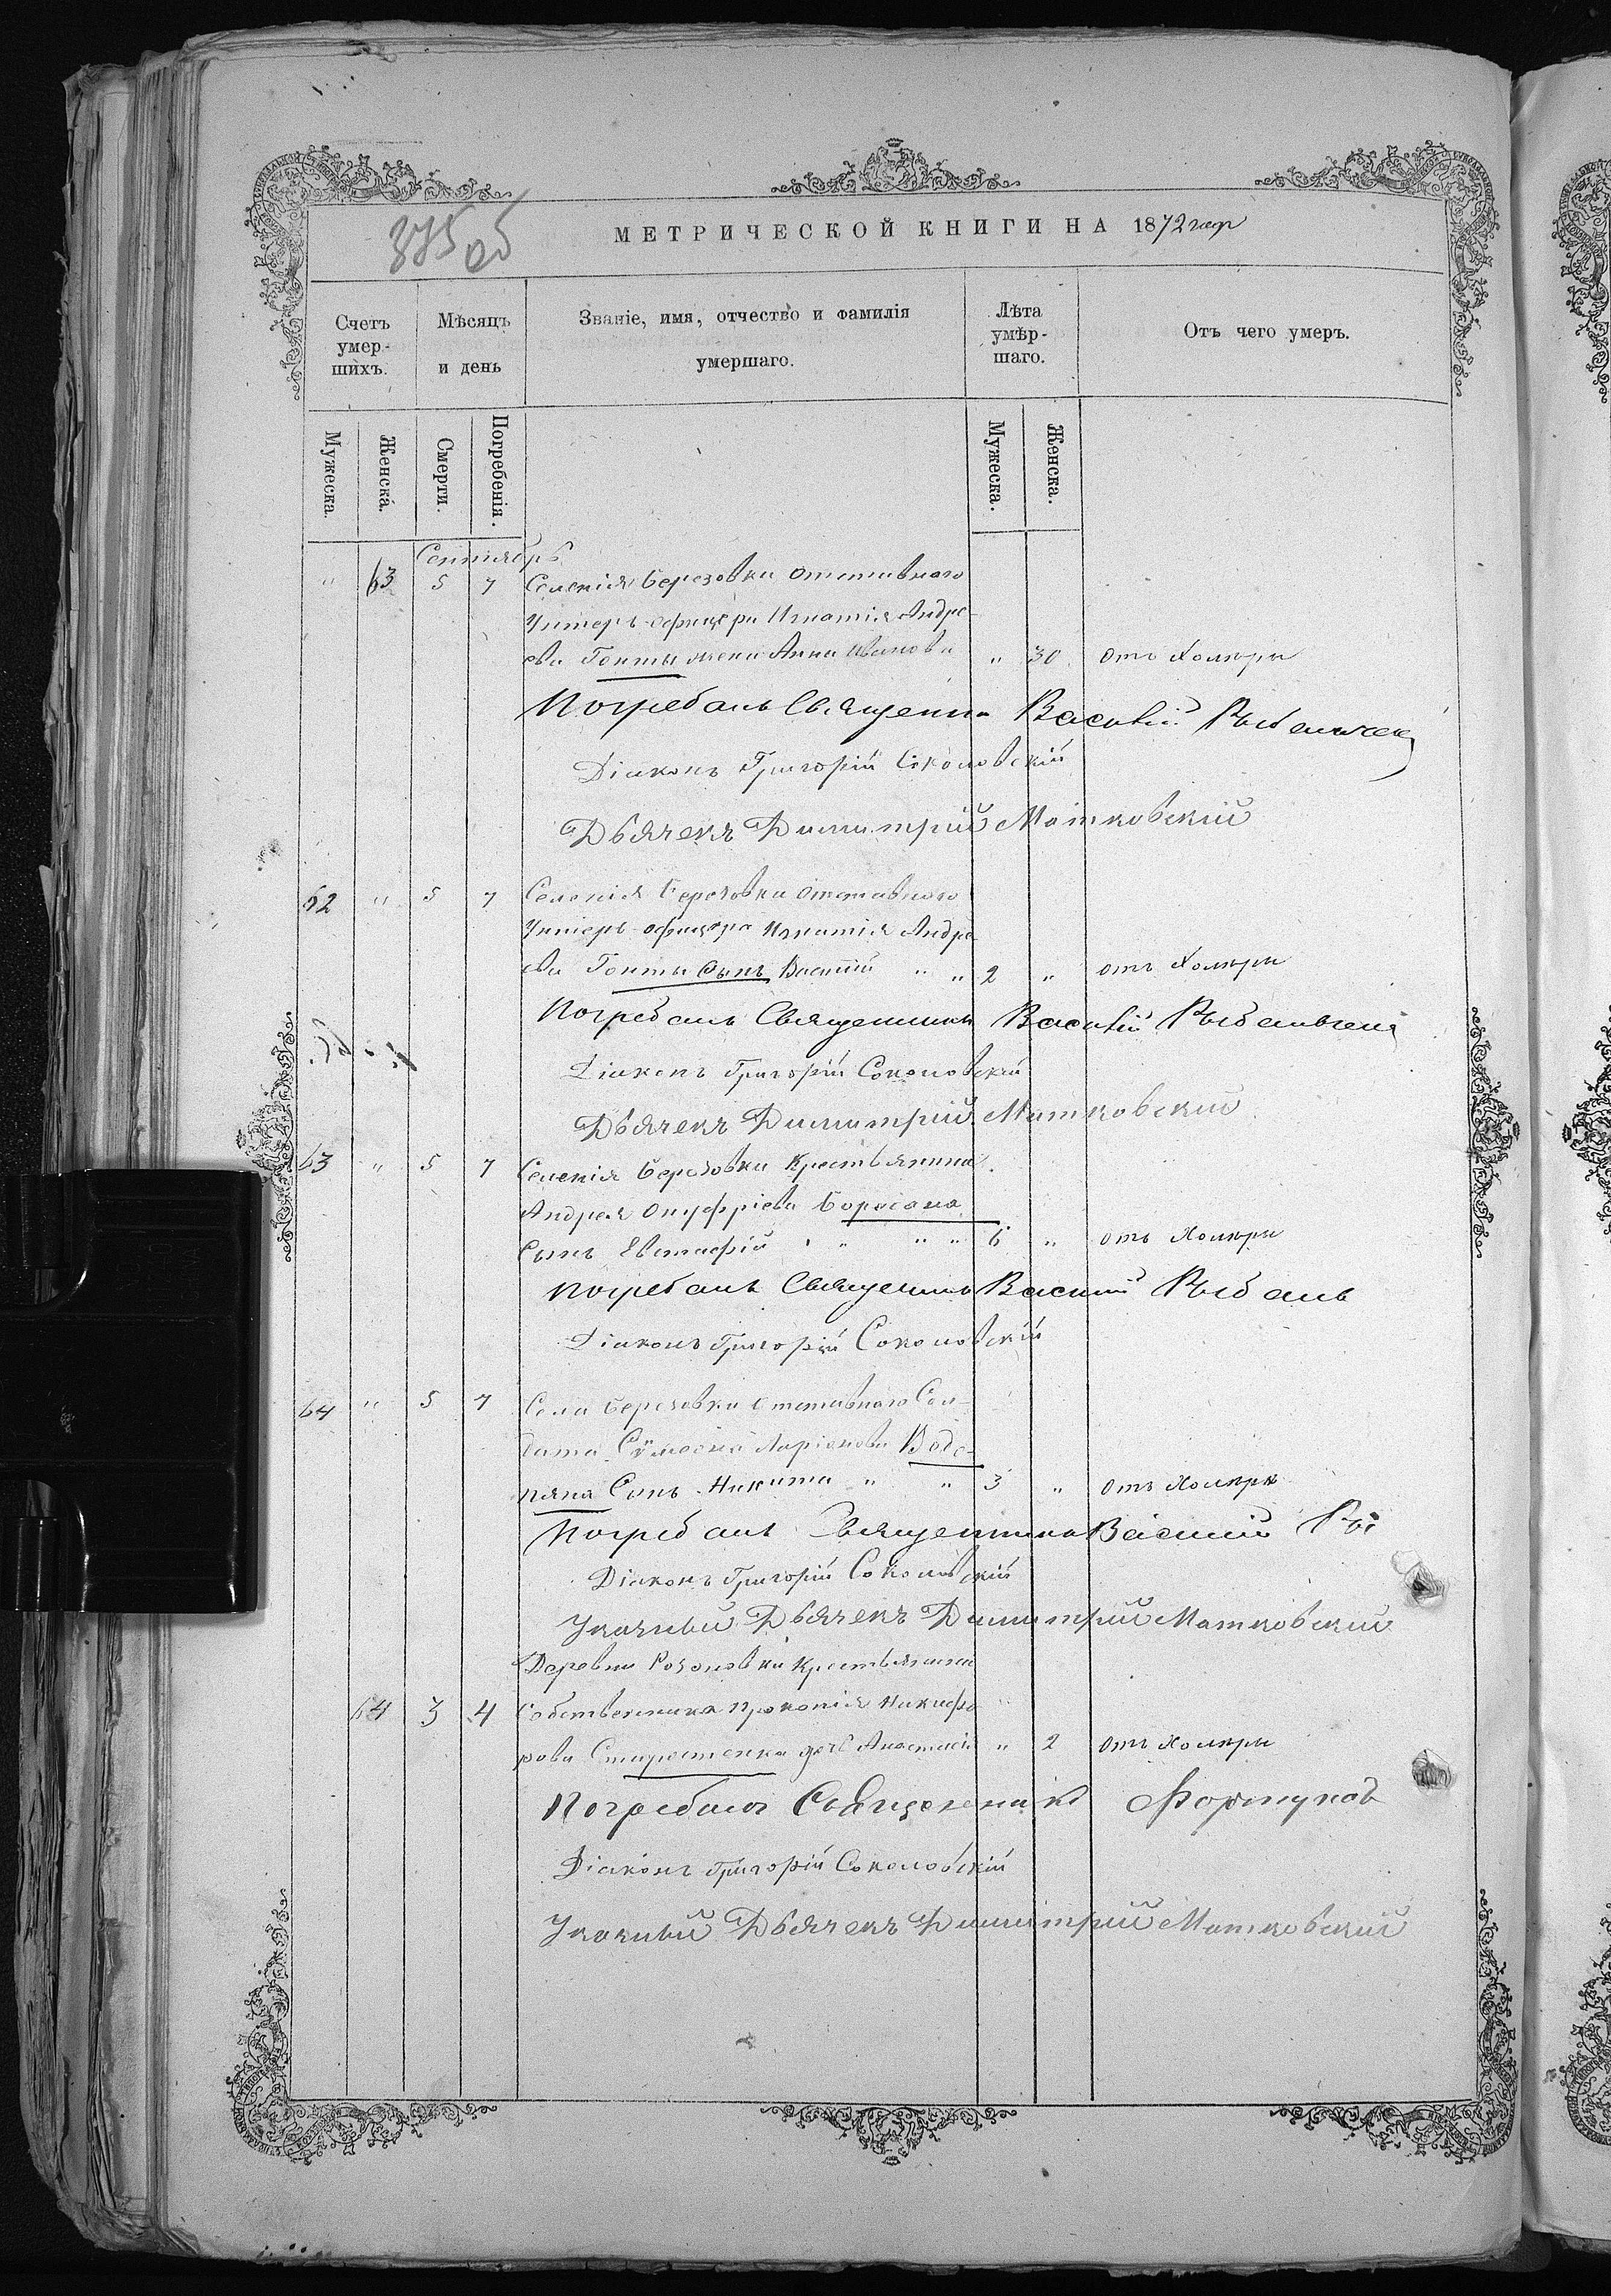 375 об
МЕТРИЧЕСКОЙ КНИГИ НА 1872 годъ
Счетъ умершихъ.
Мѣсяцъ и день
Званіе, имя, отчество и фамилія умершаго.
Лѣта умѣршаго.
Отъ чего умеръ.
Мужеска.
Женска.
Смерти.
Погребенія.
Мужеска.
Женска.
Сентябрь
" 63 5 7 Селенія Березовки отставного
Унтеръ-офицера Игнатія Андре-
ева Гонты жена Анна Иванова " 30 отъ Холеры
Погребалъ Священни Василій
Діаконъ Григорій Соколовскій
Дьячекъ Димитрій Матковскій
62 " 5 7 Селенія Березовки отставного
Унтеръ-офицера Игнатія Андре
ева Гонты Сынъ Василій " " 2 " отъ Холеры
Погребалъ Священникъ Василій
Діаконъ Григорій Соколовскій
Дьячекъ Димитрій Матковскій
63 " 5 7 Селенія Березовки Крестьянина
Андрея Онуфріева Боросана
Сынъ Евстафій " " " " 6 " отъ Холеры
Погребалъ Священникъ Василій Рыбаль
Діаконъ Григорій Соколовскій
64 " 5 7 Села Березовки отставного Сол-
дата Ларіонова Водо-
пяна Сынъ Никита " " 3 " отъ Холеры
Погребалъ Священникъ Василій Ры
Діаконъ Григорій Соколовскій
Указный Дьячекъ Димитрій Матковскій
Деревни Крестьянина
64 3 4 Собственника Прокопія Никифо
рова Старостенка дочь Анастасія " 2 отъ Холеры
Погребалъ Священникъ Фортуновъ
Діаконъ Григорій Соколовскій
Указный Дьячекъ Димитрій Матковскій